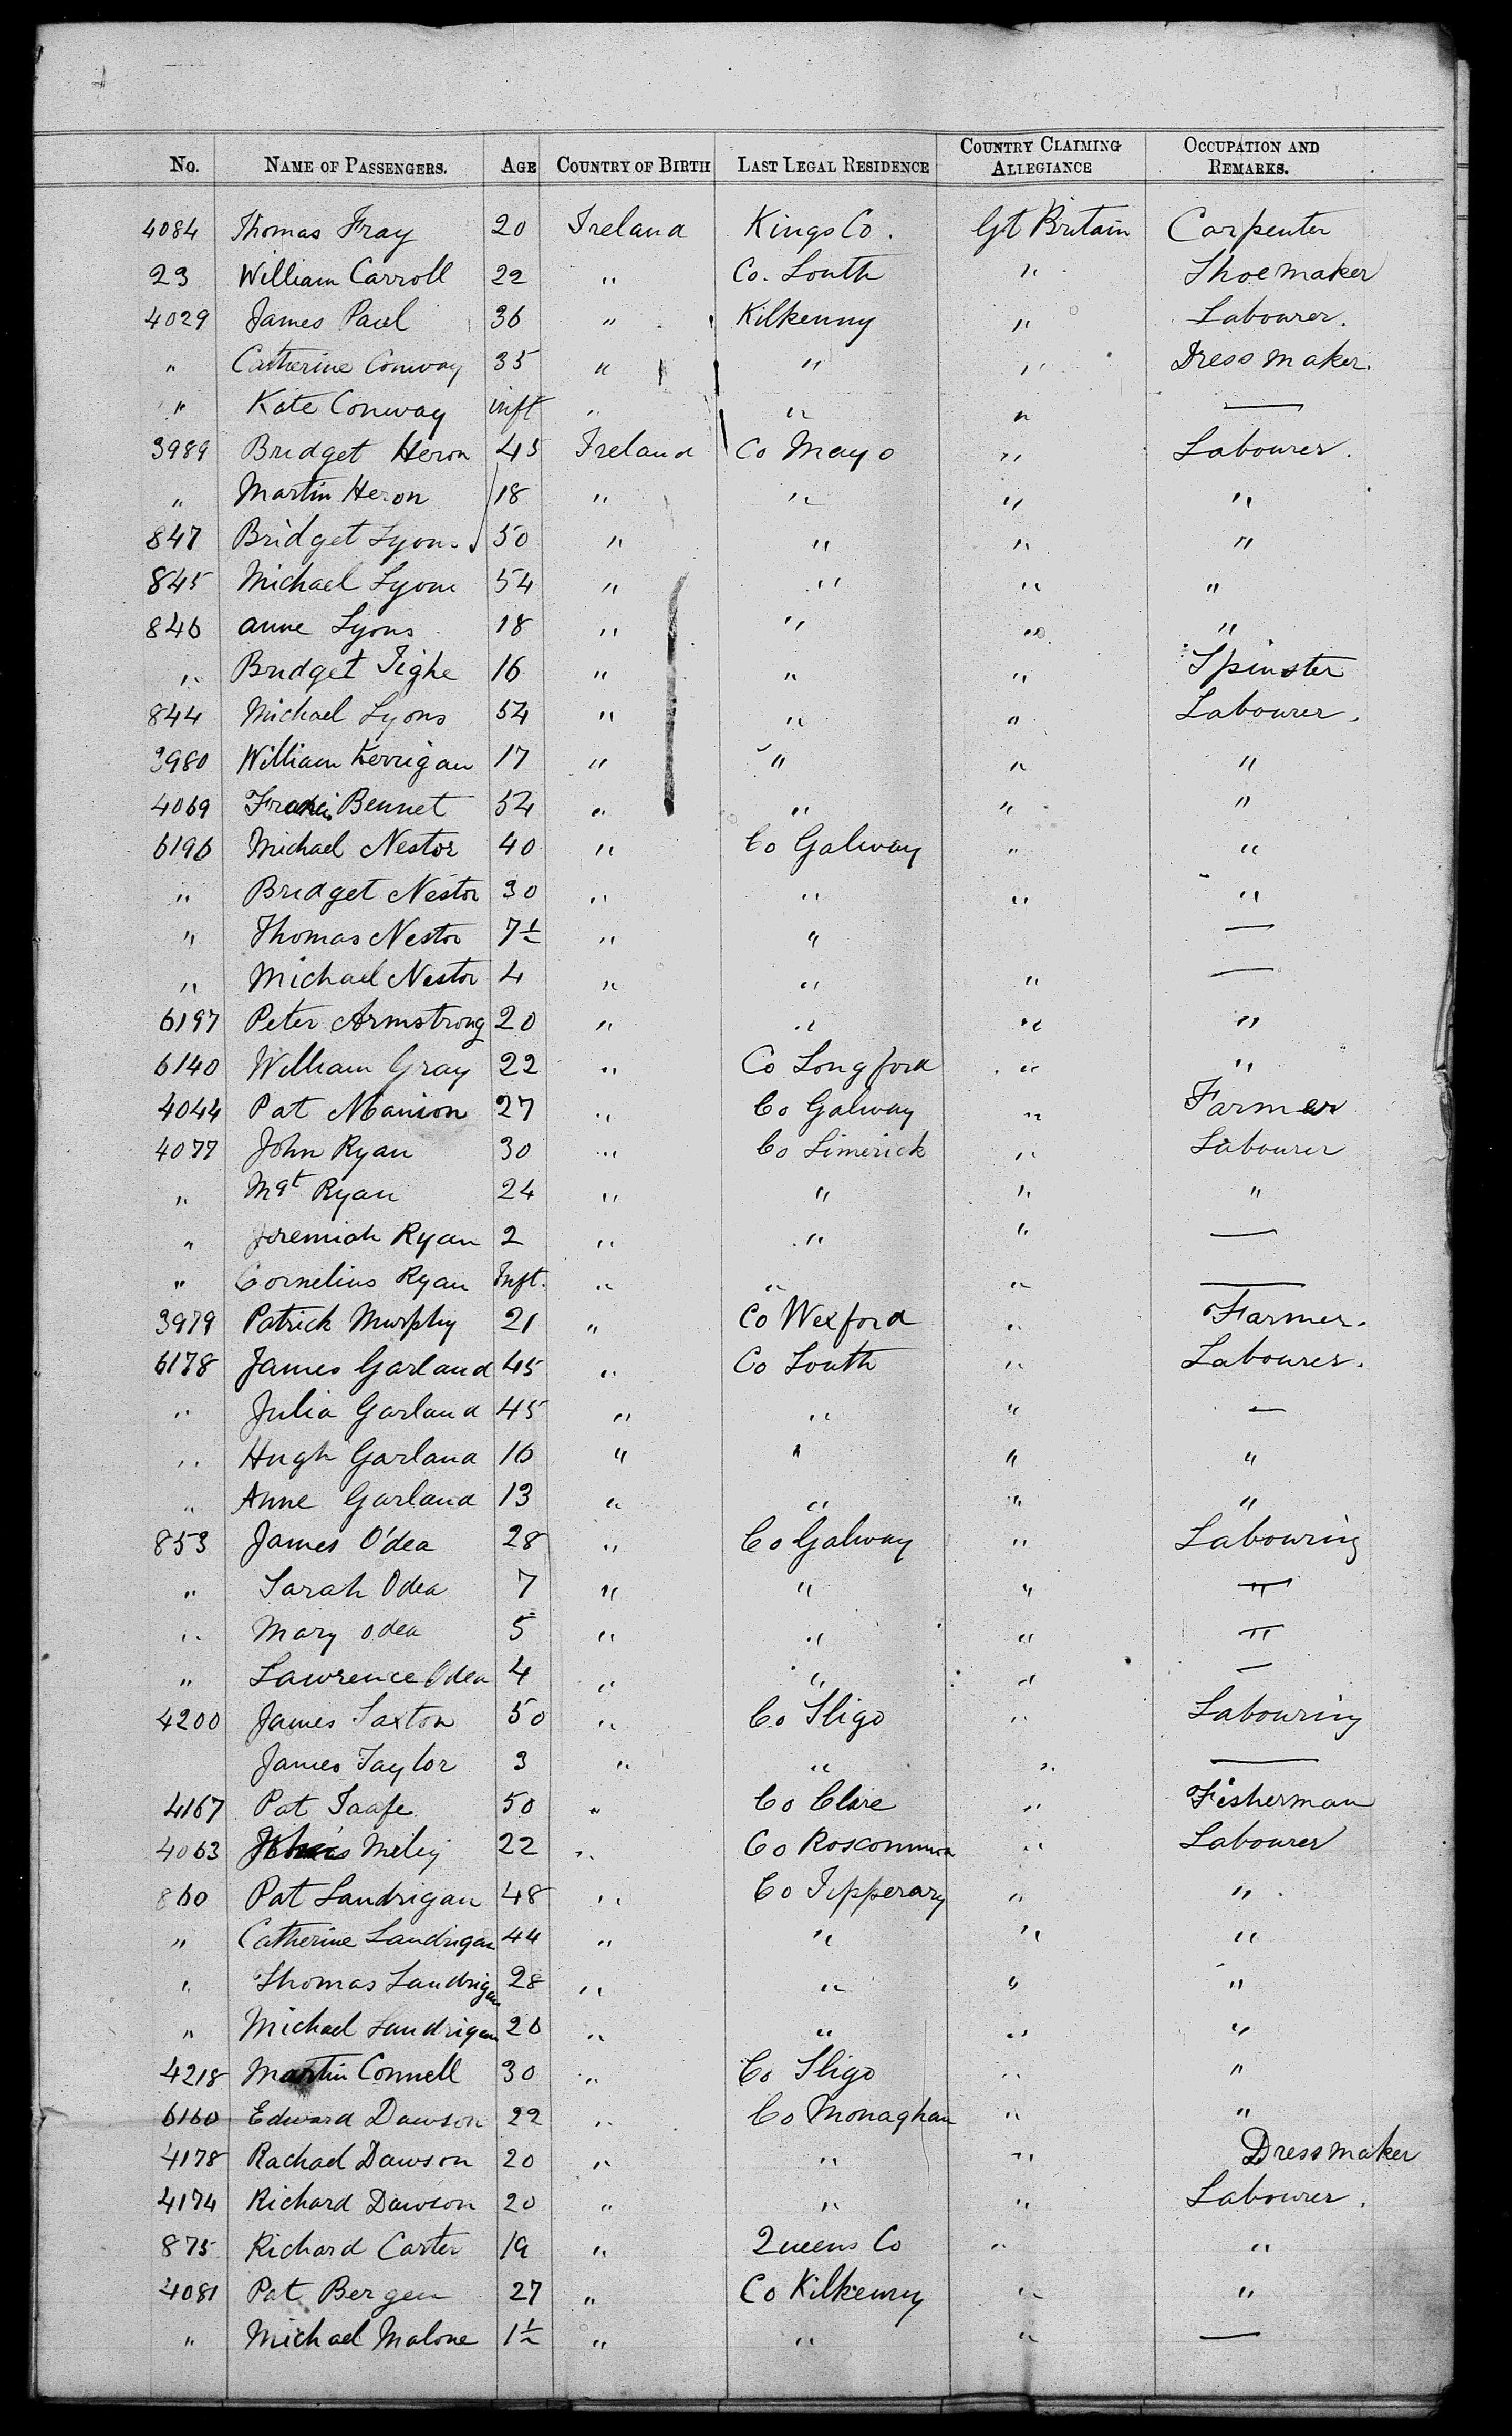 No. NAME OF PASSENGERS. AGE COUNTRY OF BIRTH LAST LEGAL RESIDENCE COUNTRY CLAIMING ALLEGIANCE OCCUPATION AND REMARKS.
4084 Thomas Fray 20 Ireland Kings Co. Gt Britain Carpenter
23 William Carroll 22 " Co. Louth " Shoemaker
4029 James Paul 36 " Kilkenny " Labourer.
" Catherine Conway 35 " " " Dress maker.
" Kate Conway inft " " " —
3989 Bridget Heron 45 Ireland Co Mayo " Labourer.
" Martin Heron 18 " " " "
847 Bridget Lyons 50 " " " "
845 Michael Lyons 54 " " " "
846 Anne Lyons 18 " " " "
" Bridget Tighe 16 " " " Spinster
844 Michael Lyons 54 " " " Labourer.
3980 William Kerrigan 17 " " " "
4069 Francis Bennet 54 " " " "
6196 Michael Nestor 40 " Co Galway " "
" Bridget Nestor 30 " " " "
" Thomas Nestor 7½ " " —
" Michael Nestor 4 " " " —
6197 Peter Armstrong 20 " " " "
6140 William Gray 22 " Co Longford " "
4044 Pat Manion 27 " Co Galway " Farmer
4077 John Ryan 30 " Co Limerick " Labourer
" Mgt Ryan 24 " " " "
" Jeremiah Ryan 2 " " " —
" Cornelius Ryan Inft. " " " —
3979 Patrick Murphy 21 " Co Wexford " Farmer.
6178 James Garland 45 " Co Louth " Labourer.
" Julia Garland 45 " " " —
" Hugh Garland 16 " " " "
" Anne Garland 13 " " " "
853 James O'dea 28 " Co Galway " Labouring
" Sarah Odea 7 " " " —
" Mary Odea 5 " " " —
" Lawrence Odea 4 " " " —
4200 James Saxton 50 " Co Sligo " Labouring
James Taylor 3 " " " —
4167 Pat Taafe 50 " Co Clare " Fisherman
4063 Meliy 22 " Co Roscommon " Labourer
860 Pat Landrigan 48 " Co Tipperary " "
" Catherine Landrigan 44 " " " "
" Thomas Landrigan 28 " " " "
" Michael Landrigan 26 " " " "
4218 Martin Connell 30 " Co Sligo " "
6160 Edward Dawson 22 " Co Monaghan " "
4178 Rachael Dawson 20 " " " Dressmaker
4174 Richard Dawson 20 " " " Labourer.
875 Richard Carter 19 " Queens Co " "
4081 Pat Bergen 27 " Co Kilkenny " "
" Michael Malone 1½ " " " —